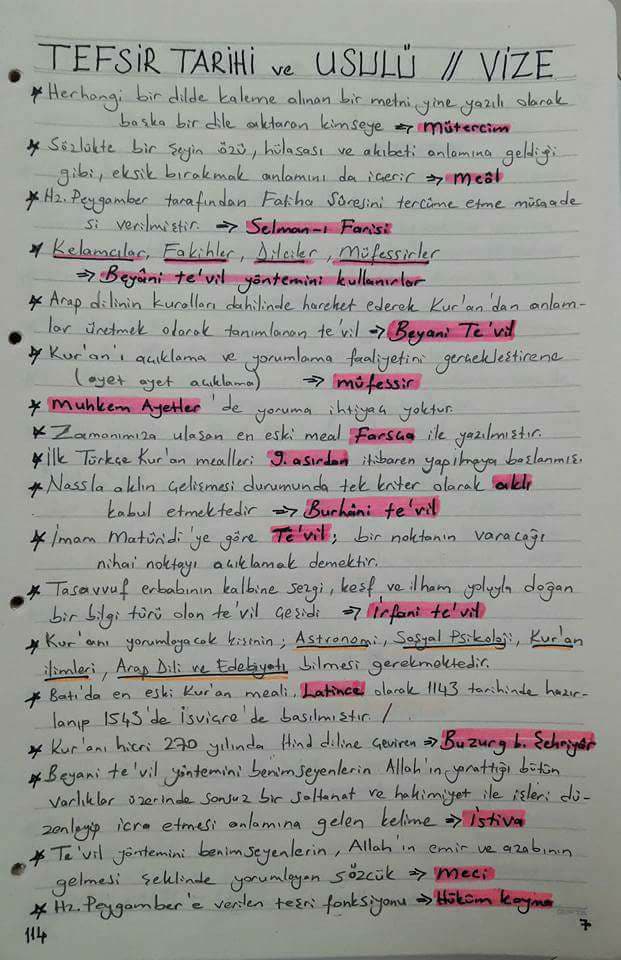 TEFSİR TARİHİ ve USULÜ // VİZE
★ Herhangi bir dilde kaleme alınan bir metni, yine yazılı olarak
başka bir dile aktaran kimseye ⇒ mütercim
★ Sözlükte bir şeyin özü, hülasası ve akıbeti anlamına geldiği
gibi, eksik bırakmak anlamını da içerir ⇒ meâl
★ Hz. Peygamber tarafından Fatiha Sûresini tercüme etme müsaade
si verilmiştir. ⇒ Selman-ı Farisi
★ Kelamcılar, Fakihler, Dilciler, Müfessirler
⇒ Beyâni te'vil yöntemini kullanırlar
★ Arap dilinin kuralları dahilinde hareket ederek Kur'an'dan anlam-
lar üretmek olarak tanımlanan te'vil ⇒ Beyani Te'vil
★ Kur'an'ı açıklama ve yorumlama faaliyetini gerçekleştirene
(ayet ayet açıklama) ⇒ müfessir
★ Muhkem Ayetler'de yoruma ihtiyaç yoktur.
★ Zamanımıza ulaşan en eski meal Farsça ile yazılmıştır.
★ İlk Türkçe Kur'an mealleri 9. asırdan itibaren yapılmaya başlanmış.
★ Nassla aklın çelişmesi durumunda tek kriter olarak aklı
kabul etmektedir ⇒ Burhâni te'vil
★ İmam Matüridi'ye göre Te'vil; bir noktanın varacağı
nihai noktayı açıklamak demektir.
★ Tasavvuf erbabının kalbine sezgi, keşf ve ilham yoluyla doğan
bir bilgi türü olan te'vil çeşidi ⇒ İrfani te'vil
★ Kur'anı yorumlayacak kişinin; Astronomi, Sosyal Psikoloji, Kur'an
ilimleri, Arap Dili ve Edebiyatı bilmesi gerekmektedir.
★ Batı'da en eski Kur'an meali, Latince olarak 1143 tarihinde hazır-
lanıp 1543'de İsviçre'de basılmıştır. /
★ Kur'anı hicri 270 yılında Hind diline çeviren ⇒ Buzurg b. Şehriyâr
★ Beyani te'vil yöntemini benimseyenlerin Allah'ın yarattığı bütün
varlıklar üzerinde sonsuz bir saltanat ve hakimiyet ile işleri dü-
zenleyip icra etmesi anlamına gelen kelime ⇒ istiva
★ Te'vil yöntemini benimseyenlerin, Allah'ın emir ve azabının
gelmesi şeklinde yorumlayan sözcük ⇒ Meci
★ Hz. Peygamber'e verilen teşri fonksiyonu ⇒ Hüküm koyma
114
7